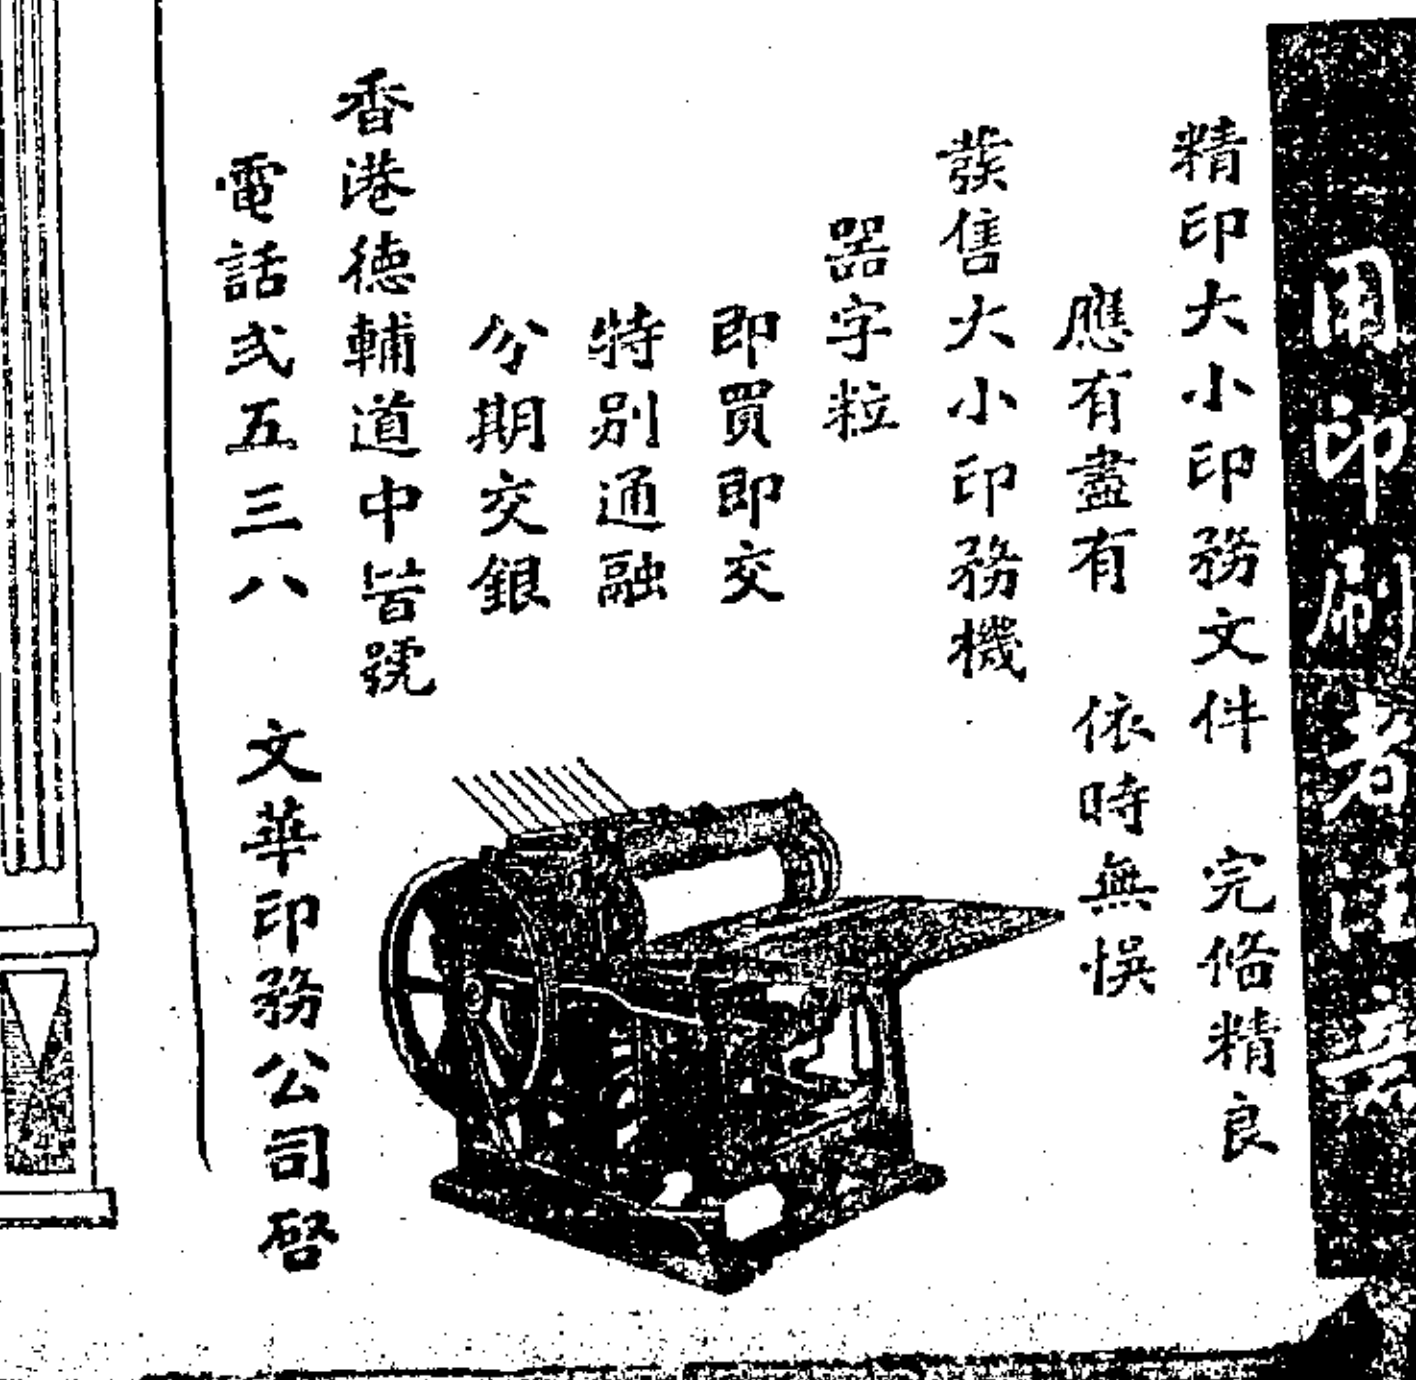 用印刷者注意
精印大小印務文件 完俻精良
應有盡有 依時無悞
發售大小印務機
器字粒
即買即交
特别通融
分期交銀
香港德輔道中皆號
電話弍五三八 文華印務公司啓